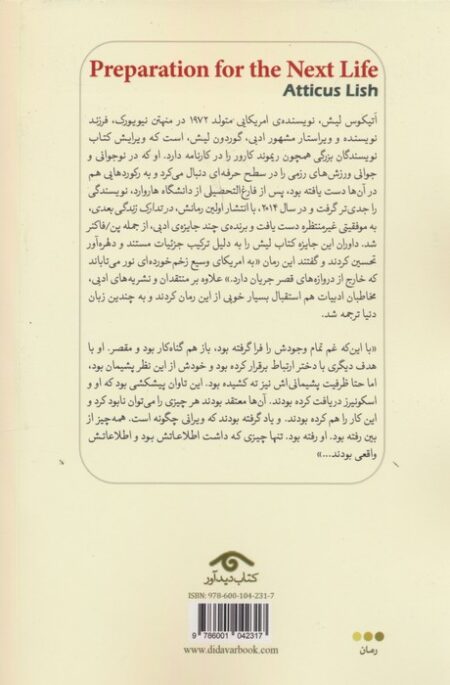 Preparation for the Next Life
Atticus Lish
آتیکوس لیش، نویسنده‌ی امریکایی متولد ۱۹۷۲ در منهتن نیویورک، فرزند
نویسنده و ویراستار مشهور ادبی، گوردون لیش، است که ویرایش کتاب
نویسندگان بزرگی همچون ریموند کارور را در کارنامه دارد. او که در نوجوانی و
جوانی ورزش‌های رزمی را در سطح حرفه‌ای دنبال می‌کرد و به رکوردهایی هم
در آن‌ها دست یافته بود، پس از فارغ‌التحصیلی از دانشگاه هاروارد، نویسندگی
را جدی‌تر گرفت و در سال ۲۰۱۴، با انتشار اولین رمانش، در تدارک زندگی بعدی،
به موفقیتی غیرمنتظره دست یافت و برنده‌ی چند جایزه‌ی ادبی، از جمله پن/فاکنر
شد. داوران این جایزه کتاب لیش را به دلیل ترکیب جزئیات مستند و دلهره‌آور
تحسین کردند و گفتند این رمان «به امریکای وسیع زخم‌خورده‌ای نور می‌تاباند
که خارج از دروازه‌های قصر جریان دارد.» علاوه بر منتقدان و نشریه‌های ادبی،
مخاطبان ادبیات هم استقبال بسیار خوبی از این رمان کردند و به چندین زبان
دنیا ترجمه شد.
«با این‌که غم تمام وجودش را فرا گرفته بود، باز هم گناه‌کار بود و مقصر. او با
هدف دیگری با دختر ارتباط برقرار کرده بود و خودش از این نظر پشیمان بود،
اما حتا ظرفیت پشیمانی‌اش نیز ته کشیده بود. این تاوان پیشکشی بود که او و
اسکونیرز دریافت کرده بودند. آن‌ها معتقد بودند هر چیزی را می‌توان نابود کرد و
این کار را هم کرده بودند. و یاد گرفته بودند که ویرانی چگونه است. همه‌چیز از
بین رفته بود. او رفته بود. تنها چیزی که داشت اطلاعاتش بود و اطلاعاتش
واقعی بودند...»
کتاب دیدآور
ISBN: 978-600-104-231-7
9 786001 042317
www.didavarbook.com
رمان